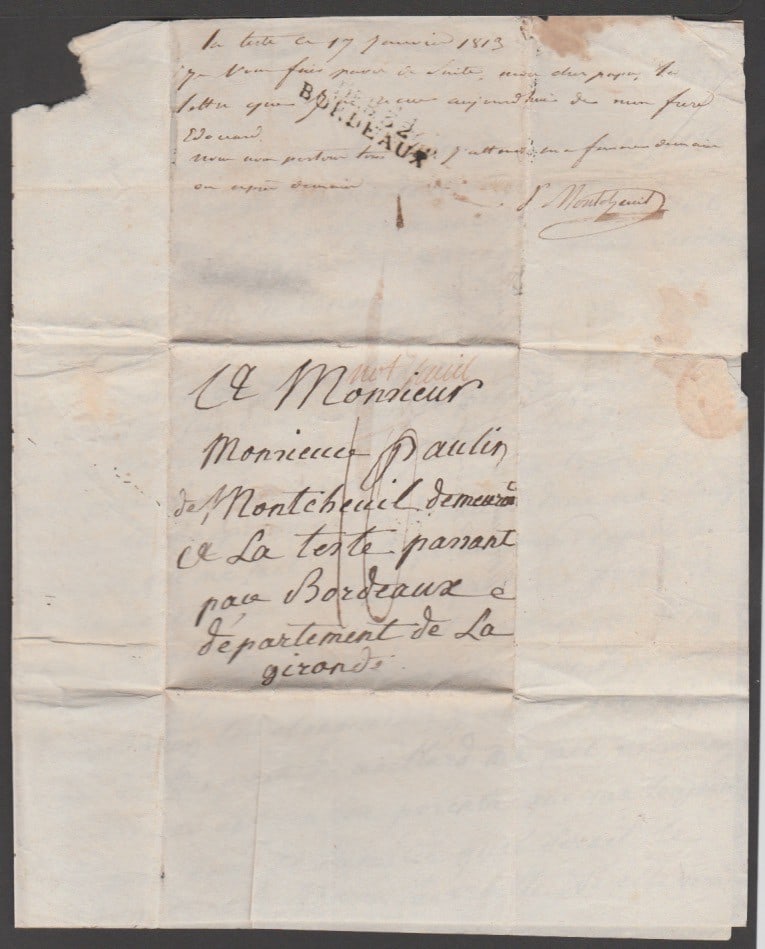 la teste ce 17 Janvier 1813
Je vous fais passer de suite, mon cher papa, la
lettre que je reçue aujourd'hui de mon frere
Edouard.
nous nous portons tous J'attends ma femme demain
ou après demain
P Montcheuil
DEB. 32
BORDEAUX
A Monsieur
Monsieur Paulin
de Montcheuil demeurant
a La teste passant
par Bordeaux
département de La
gironde